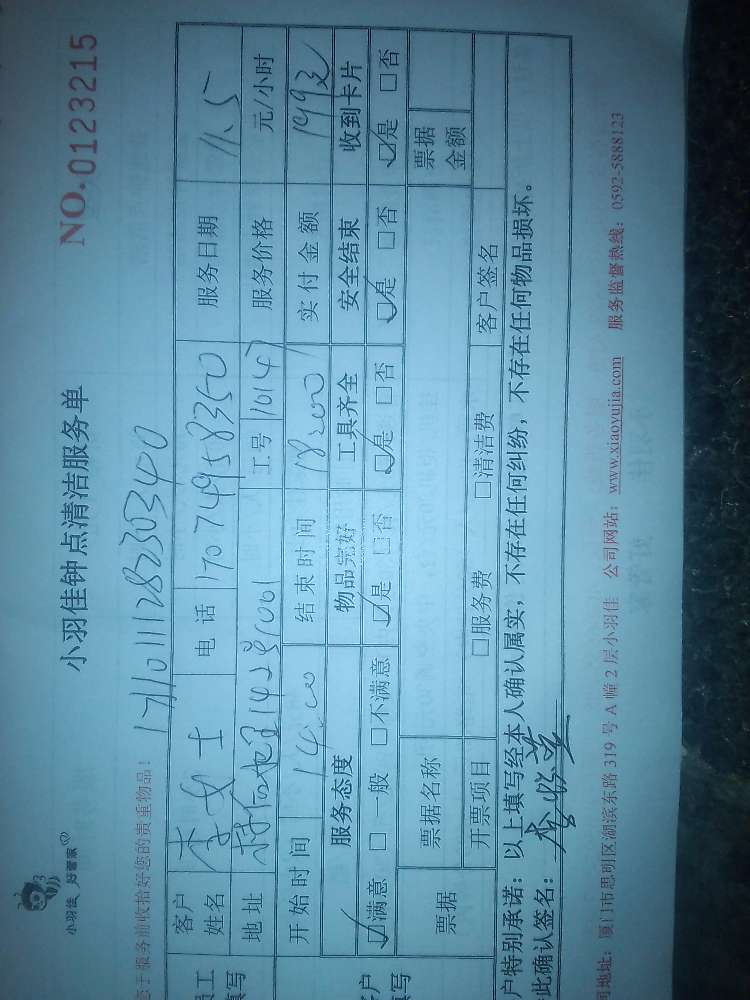 小羽佳 好管家
小羽佳钟点清洁服务单
NO.0123215
于服务前收拾好您的贵重物品!
1711011128230340
客户姓名 李女士 电话 17074958350 服务日期 11.5
地址 14号1001 工号 10147 服务价格 元/小时
开始时间 14:00 结束时间 18:00 实付金额 199元
服务态度 物品完好 工具齐全 安全结束 收到卡片
☑满意 □一般 □不满意 ☑是 □否 ☑是 □否 ☑是 □否 ☑是 □否
票据 票据名称 票据金额
开票项目 □服务费 □清洁费 客户签名
户特别承诺:以上填写经本人确认属实,不存在任何纠纷,不存在任何物品损坏。
此确认签名:
地址:厦门市思明区湖滨东路319号A幢2层小羽佳 公司网站:www.xiaoyujia.com 服务监督热线:0592-5888123